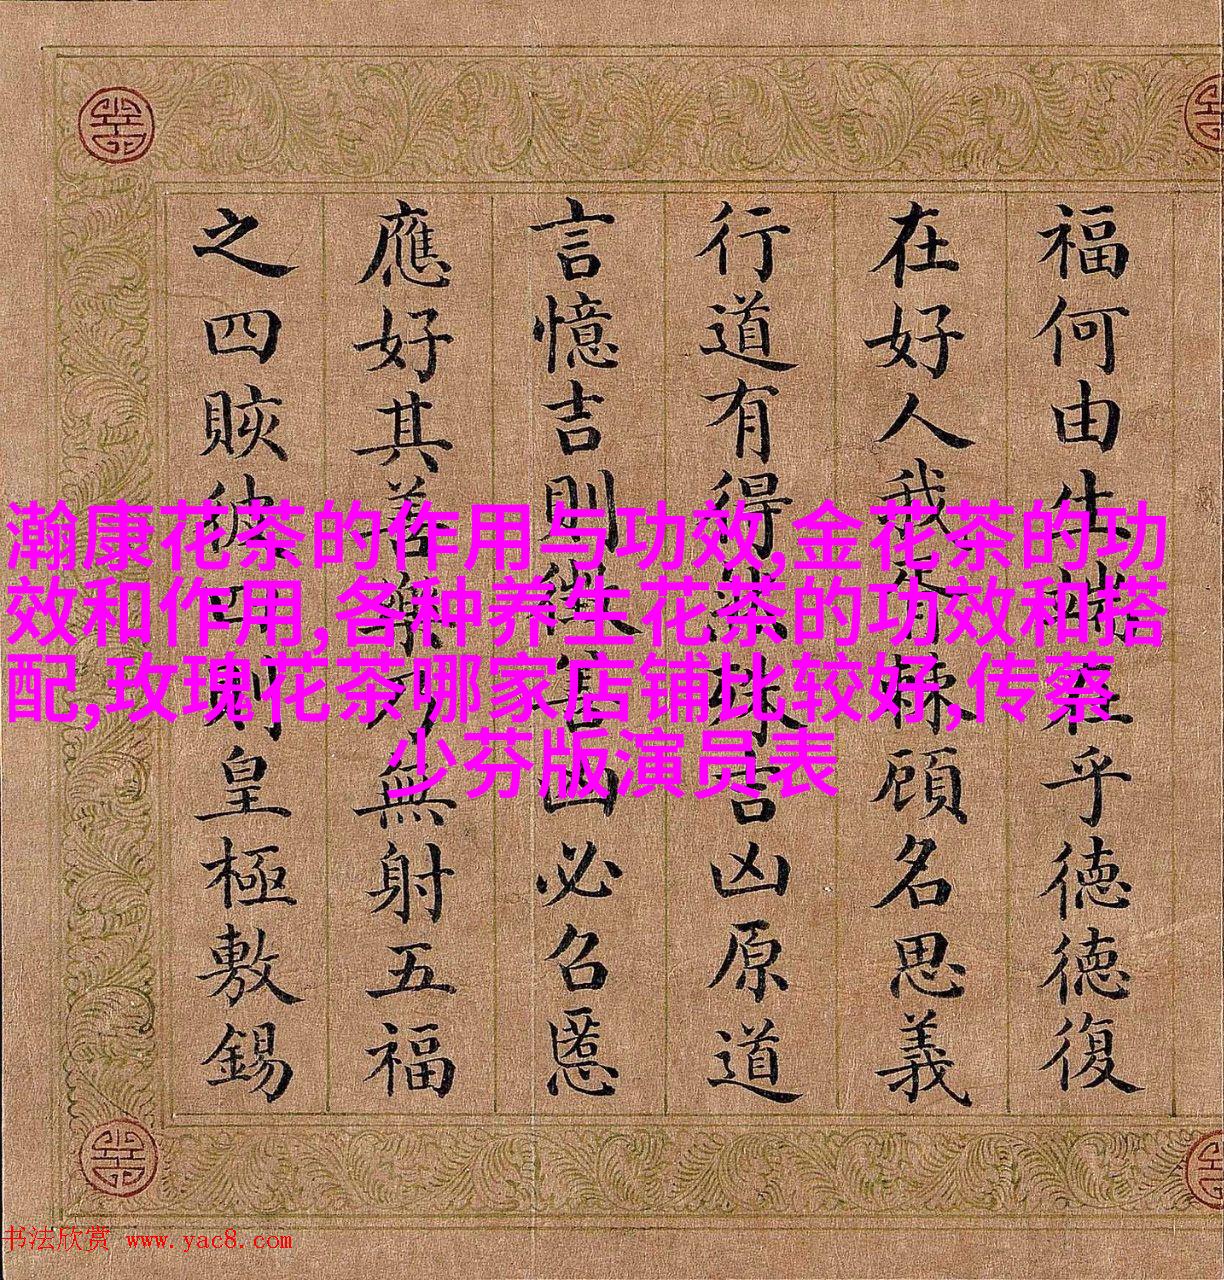 福何由生在乎德德復
在好人我顧名思義
行道有得吉凶原道
言憶吉則凶必召慝
應好其善樂無射五福
之四賅彼四則皇極敷錫
瀚康花茶的作用与功效,金花茶的功
效和作用,各种养生花茶的功效和搭
配,玫瑰花茶哪家店铺比较好,传蔡
少芬版演员表
书法欣赏 www.yac8.com